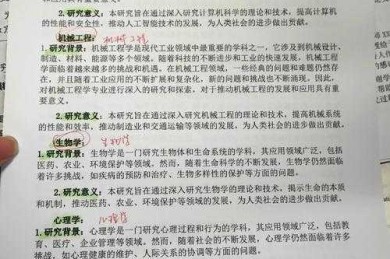 2.研究意义：本文旨在通过深入研究计算机科学的理论和技术，提高计算机
的性能和安全性，推动人工智能技术的发展，为人类社会的进步做出贡献。
机械工程： 机械工程
1.研究背景：机械工程学是现代工业领域中最重要的学科之一，它涉及到机械设计、
制造、材料、能源等多个领域。随着科技的不断进步和工业的快速发展，机械工程
学面临着越来越多的挑战和机遇。在机械工程领域，一些经典的问题和难题仍然存
在，并且随着工业应用的不断扩展和复杂化，新的问题和挑战也不断涌现。因此，
对机械工程学专业进行深入的研究和探索，对于推动机械工程的发展和应用具有重
要意义。
2.研究意义：本文旨在通过深入研究机械工程的理论和技术，提高机械系统
的性能和效率，推动制造业和交通运输等领域的发展，为人类社会的进步做出贡献。
生物学：
1.研究背景：生物学是一门研究生物体和生命系统的学科，其应用领域广泛，包括
医药、农业、环境保护等领域。然而，随着生命科学的不断发展，生物学仍然面临
着许多挑战，如疾病的预防和治疗、生物多样性的保护等方面的问题。
2.研究意义：本文旨在通过深入研究生物学的理论和技术，揭示生命的本质
和机制，推动医药、农业、环境保护等领域的发展，为人类社会的进步做出贡献。
心理学： 心理学
1.研究背景：心理学是一门研究心理过程和行为的学科，其应用领域广泛，包括
教育、医疗、企业管理等领域。然而，随着社会的不断发展，心理学仍然面临着许多
挑战，如心理健康的维护、人际关系的协调等方面的问题。